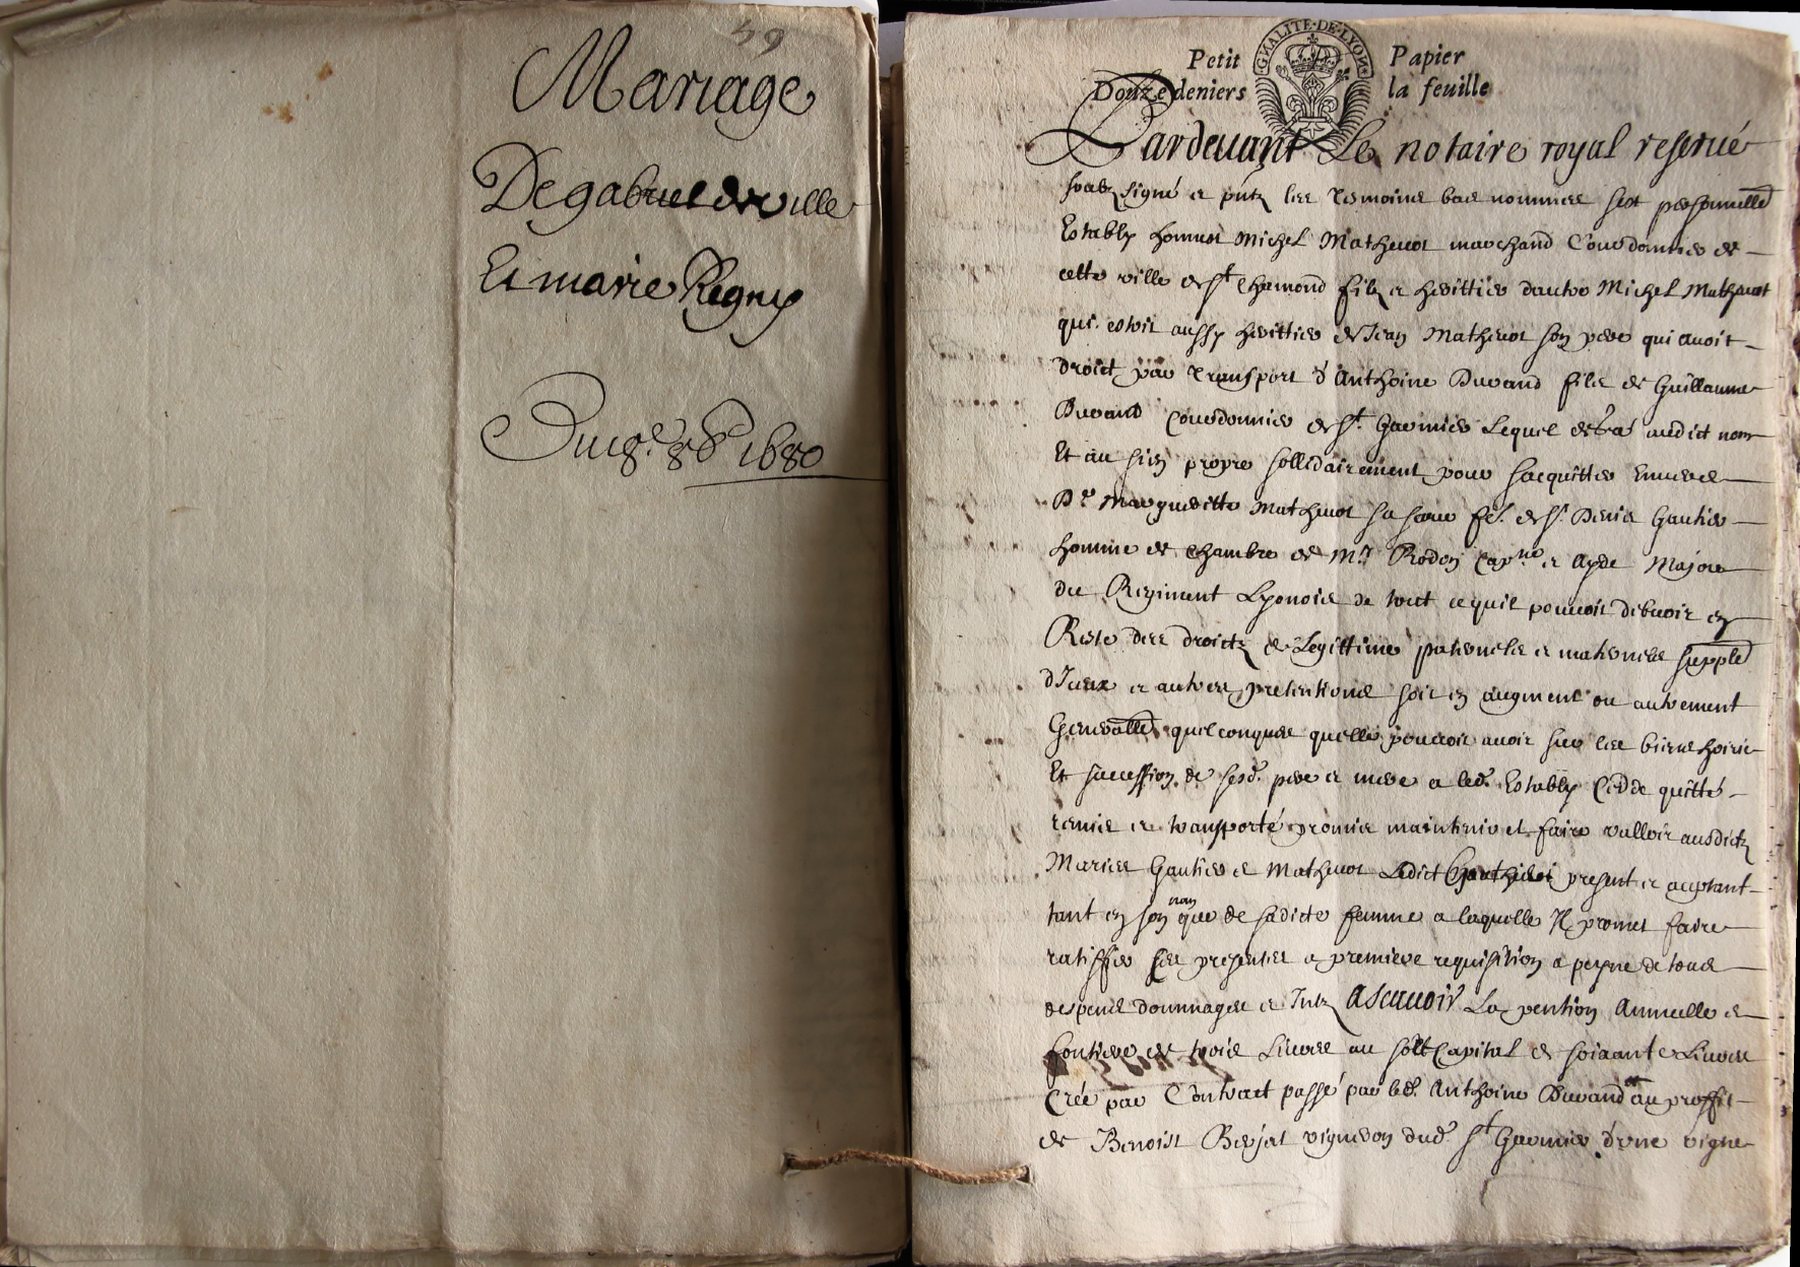 59
Mariage
De gabriel deville
Et marie Regny
Du 18e 8bre 1680
GNALITE·DE·LYON
Petit Papier
Douze deniers la feuille
Pardeuant Le notaire royal reserué
soubz signé et pntz les tesmoins bas nommes sest personnelle
Estably honneste Michel Matheuot marchand Courdonnier de
cette ville de St Chamond filz et heritier dautre Michel Matheuot
qui estoit aussy heritier de Jean Matheuot son pere qui auoit
droict par transport d'Anthoine Durand fils de Guillaume
Durand Courdonnier de St Garmier Lequel de gré audict nom
Et au sien propre sollidairement pour sacquitter enuers
De Margueritte Matheuot sa soeur fe. de Sr. Denis Gautier
homme de chambre de Mr. Rodon Capne et Ayde Major
du Regiment Lyonois de tout ce quil pouuoit debuoir en
Reste des droictz de Legittime paternels et maternels supple
d'Iceux et autres pretentions soit en augment ou autrement
Generalle quelconques quelle pouuoit auoir sur les biens hoirie
Et succession de sesd. pere et mere a led. Estably Ceddé quitté
remis et transporté promis maintenir et faire valloir ausdictz
Maries Gautier et Matheuot Ledict Gauthier present et acceptant
tant en son nom que de sadicte femme a laquelle Il promet faire
ratiffier ces presentes a premiere requisition a peyne de tous
despens dommages et Intz Ascauoir La pention Annuelle et
fontiere de trois Liures au sort Capital de soixante Liures
Crée par Contract passé par led. Anthoine Durand au proffit
de Benoist Berjat vigneron dud. St Garmier d'une vigne